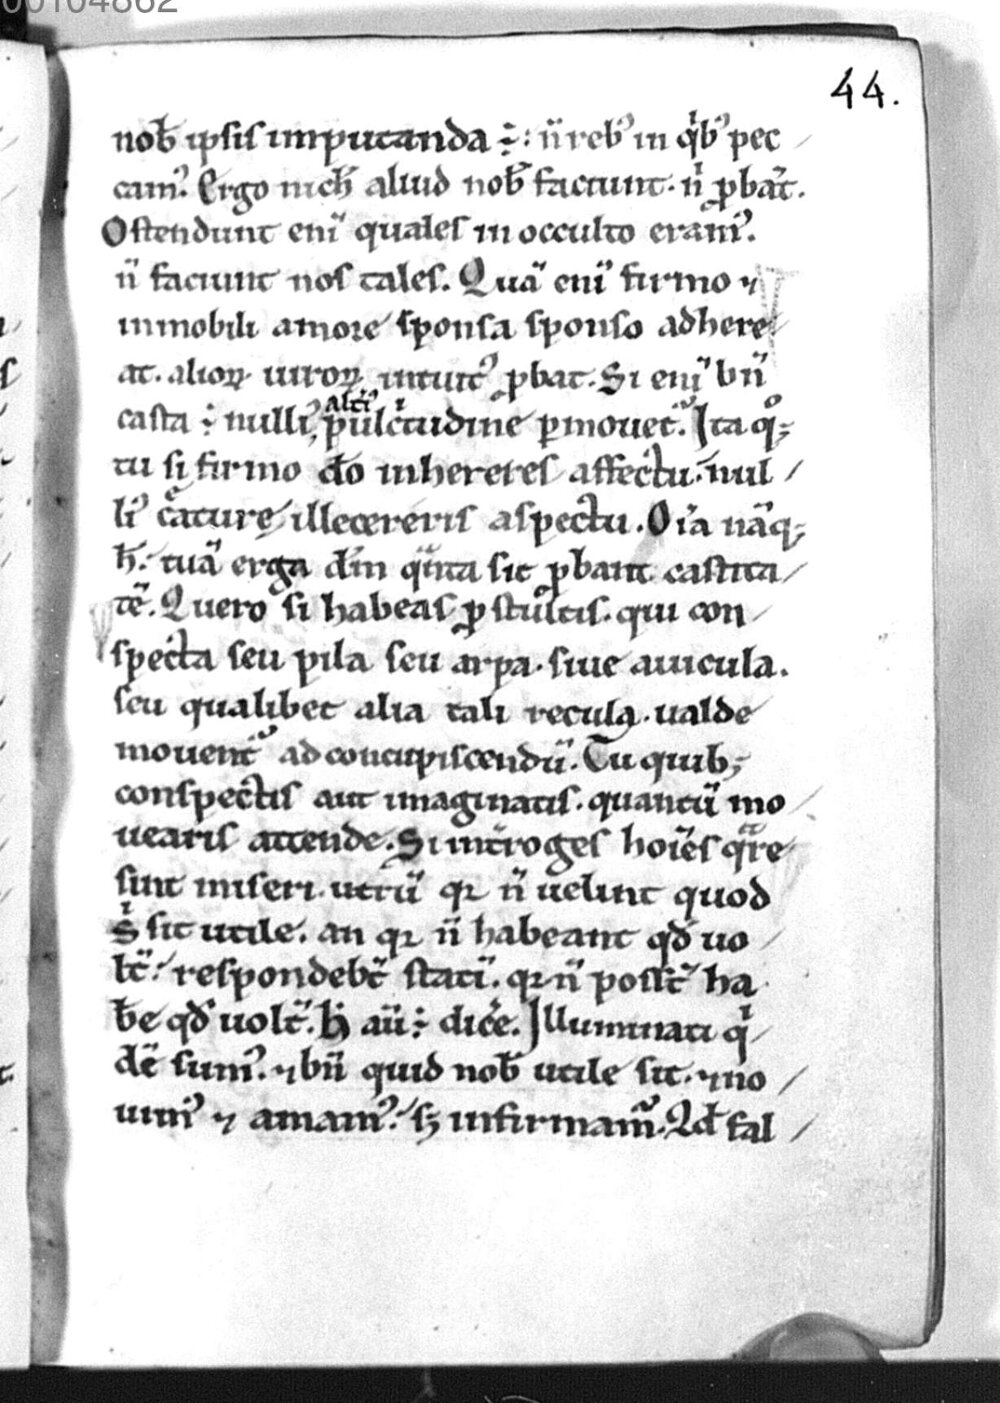 00104862
44.
nob̄ ipsis imputanda ÷: n̄ rebꝰ in qͥbꝰ pec
camꝰ. Ergo nich̄ aliud nob̄ faciunt. n̄ ꝓbat᷑.
Ostendunt eni̅ quales in occulto eramꝰ.
n̄ faciunt nos tales. Quā eni̅ firmo ⁊
inmobili amore sponsa sponso adhere
at. alioꝝ uiroꝝ intuitꝰ ꝓbat. Si eni̅ bn̄
casta ÷ nulliꝰ altiꝰ pulcͥtudine ꝑmouet᷑. Ita qͦꝫ
tu si firmo dō inhereres affectu. nul
liꝰ c̄ature illecereris aspectu. Oīa nāqꝫ
h̄. tuā erga dm̄ qͣnta sit ꝓbant castita
tē. Quero si habeas ꝓ stultis. qui con
specta seu pila seu arpa. siue auicula.
seu qualibet alia tali recula. ualde
mouent᷑ ad concupiscendū. Tu quibꝫ
conspectis aut imaginatis. quantū mo
uearis attende. Si int̄roges hoīes qͣre
sint miseri. utrū qꝛ n̄ uelint quod
sͥ sit utile. an qꝛ n̄ habeant qđ uo
lt̄. respondebt̄ statī. qꝛ n̄ posst̄ ha
b̄e qđ uolt̄. H̄ aū ÷ dic̄e. Illuminati qͥ
dē sumꝰ. ⁊ bn̄ quid nob̄ utile sit. ⁊ no
uimꝰ ⁊ amamꝰ. sꝫ infirmam᷑. Ad fal